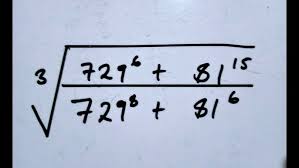 3√
729⁶ + 81¹⁵
729⁸ + 81⁶